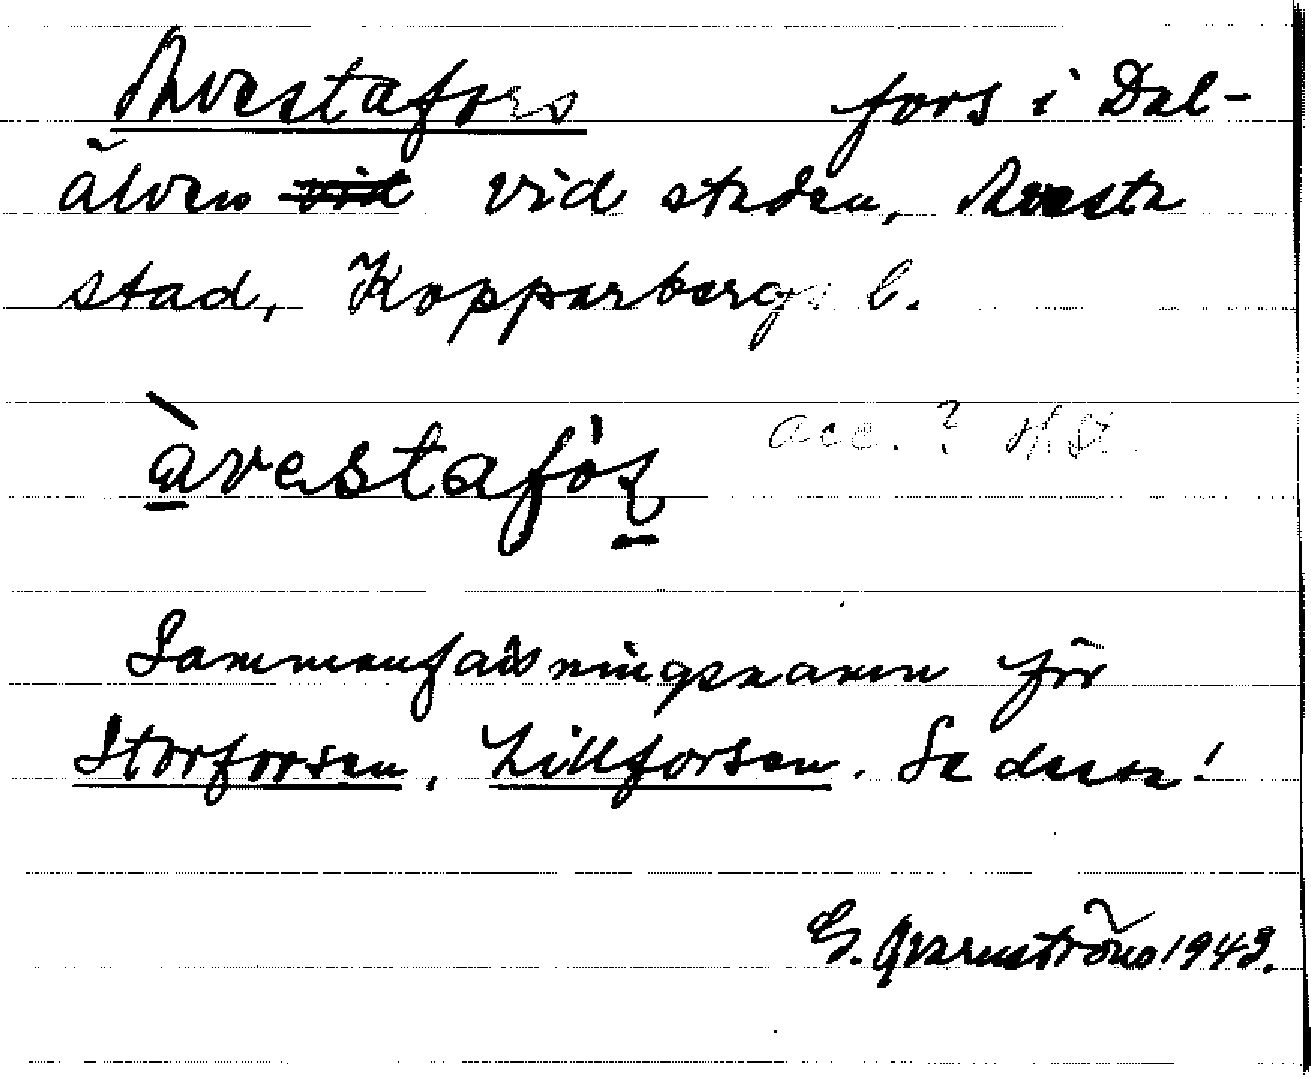 Avestafors fors i Dal-
älven vid vid staden, Avesta
stad, Kopparbergs l.
àvestafòʂ acc. ? H.S.
Sammanfattningsnamn för
Storforsen, Lillforsen. Se dessa!
G. Qvarnström 1943.